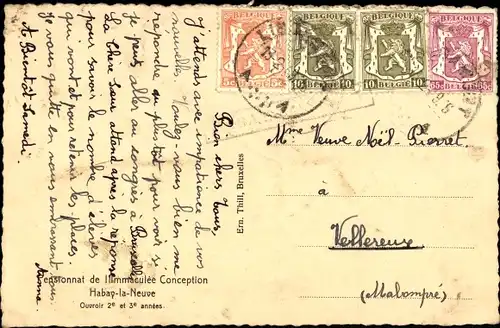 BELGIQUE BELGIE BELGIQUE BELGIQUE
5c 5c 10 10 10 10 65c 65c
Bien chers Tous,
J'attends avec impatience de vos
nouvelles. Voulez vous bien me
répondre au plus tôt pour voir si
je peux aller au congrès à Bruxelles
La Chère Sœur attend après la réponse
pour savoir le nombre d'élèves
qui vont et pour retenir les places.
Je vous quitte en vous embrassant tous
A Bientôt Samedi
Anna.
Pensionnat de l'Immaculée Conception
Habay-la-Neuve
Ouvroir 2e et 3e années.
Ern. Thill, Bruxelles
Mme Veuve Noël-Pierret
à
Vellereux
(Malompré)